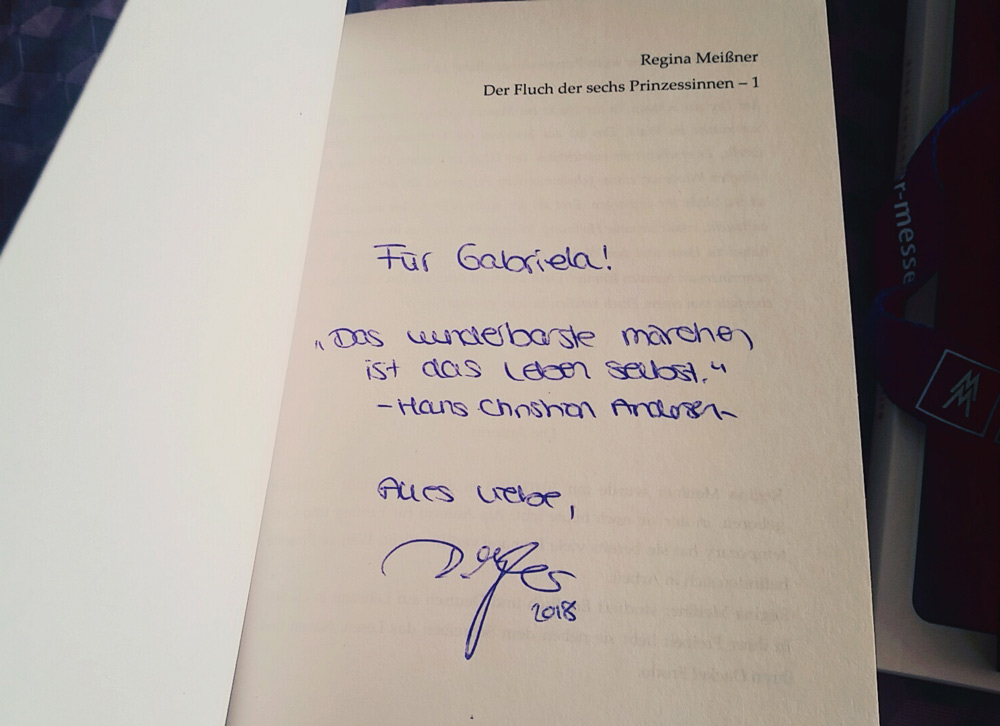 Regina Meißner
Der Fluch der sechs Prinzessinnen – 1
Für Gabriela!
„Das wunderbarste märchen
ist das Leben selbst."
-Hans Christian Andersen-
Alles Liebe,
2018
r-messe